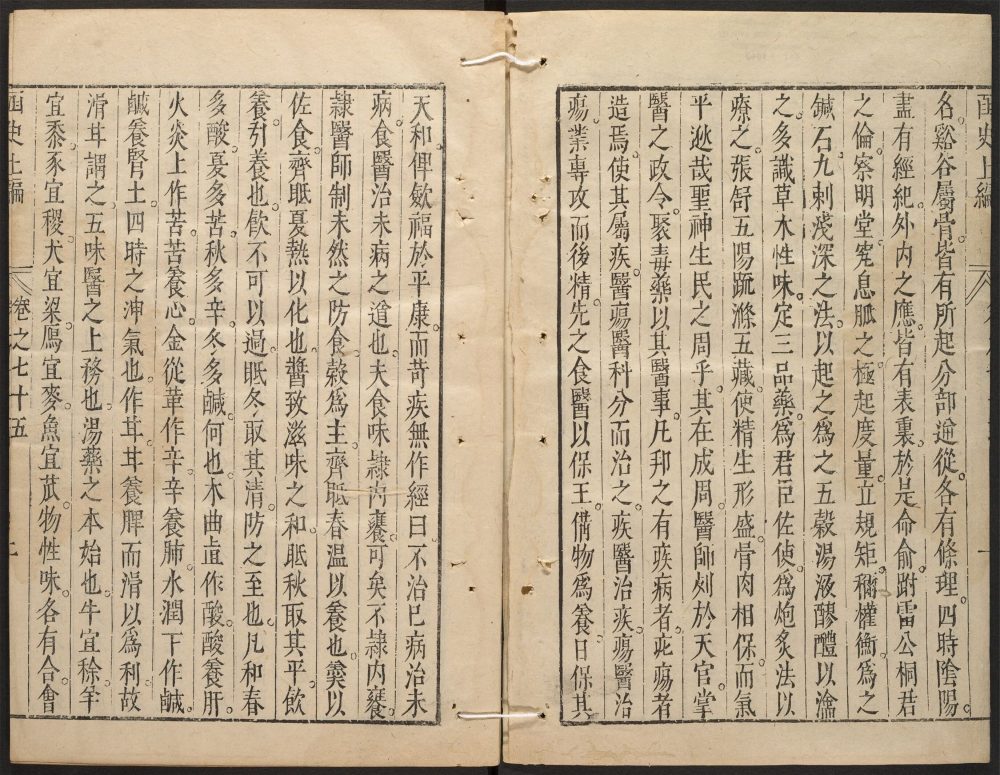 函史上編
名谿谷屬骨皆有所起分部逆從各有條理四時陰陽
盡有經紀外内之應皆有表裏於是命俞跗雷公桐君
之倫察明堂究息胍之極起度量立規矩稱權衡爲之
鍼石九刺淺深之法以起之爲之五榖湯液醪醴以瀹
之多識草木性味定三品藥爲君臣佐使爲炮炙法以
療之張舒五陽䟽滌五藏使精生形盛骨肉相保而氣
平逖哉聖神生民之周乎其在成周醫師列於天官掌
醫之政令聚毒藥以其醫事凡邦之有疾病者疕瘍者
造焉使其屬疾醫瘍醫科分而治之疾醫治疾瘍醫治
瘍業專攻而後精先之食醫以保王僃物爲養日保其
天和俾歛福於平康而苛疾無作經曰不治已病治未
病食醫治未病之道也夫食味隷内饔可矣不隷内饔
隷醫師制未然之防食榖爲主齊眂春温以養也羹以
佐食齊眂憂熱以化也醬致滋味之和眂秋取其平飮
養引養也飮不可以過眂冬取其清防之至也凡和春
多酸憂多苦秋多辛冬多鹹何也木曲直作酸酸養肝
火炎上作苦苦養心金從革作辛辛養肺水潤下作鹹
鹹養腎土四時之沖氣也作甘甘養脾而滑以爲利故
滑甘謂之五味醫之上務也湯藥之本始也牛宜稌羊
宜黍豕宜稷犬宜梁鴈宜麥魚宜苽物性味各有合會
函史上編
卷之七十五